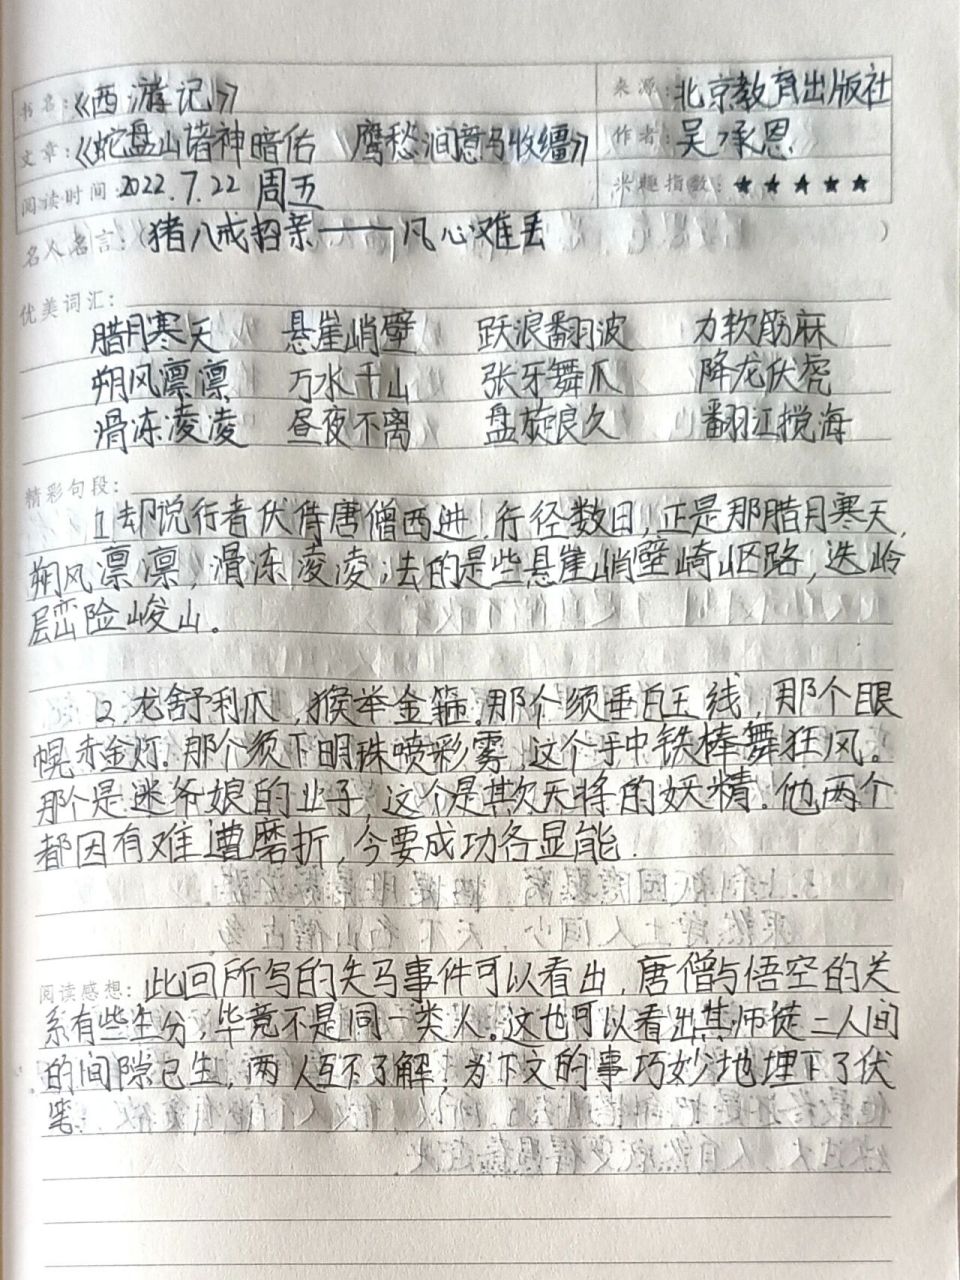 书名:《西游记》 来源:北京教育出版社
文章:《蛇盘山诸神暗佑 鹰愁涧意马收缰》 作者:吴承恩
阅读时间:2022.7.22 周五 兴趣指数:★★★★★
名人名言:(猪八戒招亲——凡心难丢)
优美词汇:
腊月寒天 悬崖峭壁 跃浪翻波 力软筋麻
朔风凛凛 万水千山 张牙舞爪 降龙伏虎
滑冻凌凌 昼夜不离 盘旋良久 翻江搅海
精彩句段:
1.却说行者伏侍唐僧西进,行径数日,正是那腊月寒天,
朔风凛凛,滑冻凌凌;去的是些悬崖峭壁崎岖路,迭岭
层峦险峻山。
2.龙舒利爪,猴举金箍。那个须垂白玉线,那个眼
幌赤金灯。那个须下明珠喷彩雾,这个手中铁棒舞狂风。
那个是迷爷娘的业子,这个是欺天将的妖精。他两个
都因有难遭磨折,今要成功各显能.
阅读感想:此回所写的失马事件可以看出,唐僧与悟空的关
系有些生分,毕竟不是同一类人。这也可以看出其师徒二人间
的间隙已生,两人互不了解,为下文的事巧妙地埋下了伏
笔.